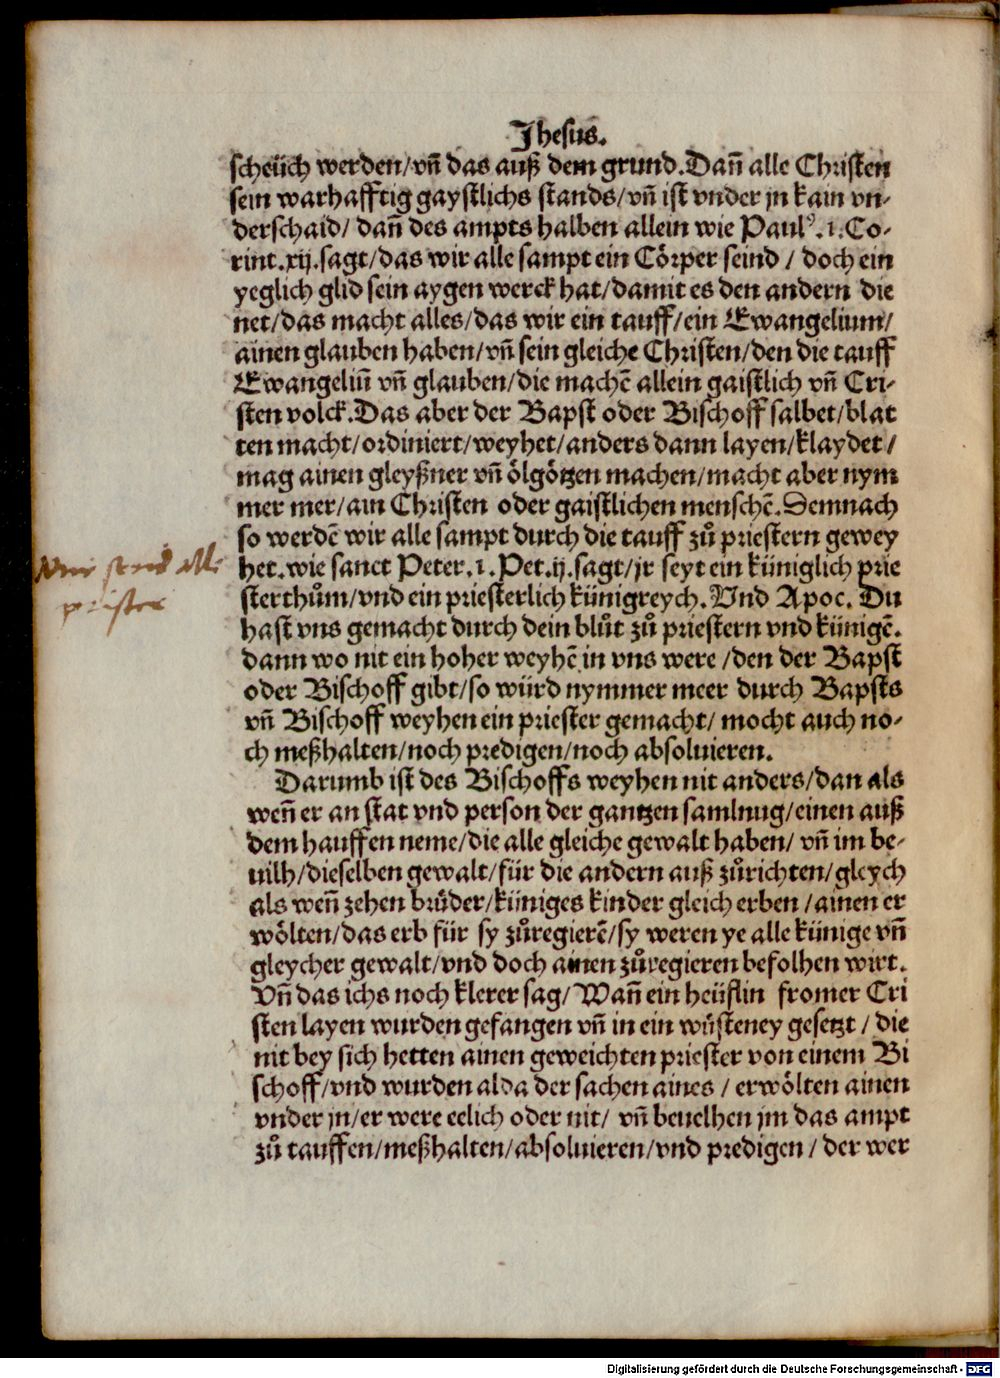 Jhesus.
scheüch werden/vñ das auß dem grund.Dañ alle Christen
sein warhafftig gaystlichs stands/vñ ist vnder jn kain vn-
derschaid/ dañ des ampts halben allein wie Paulꝰ.1.Co-
rint.xij.sagt/das wir alle sampt ein Cörper seind / doch ein
yeglich glid sein aygen werck hat/damit es den andern die
net/das macht alles/das wir ein tauff/ein Ewangelium/
ainen glauben haben/vñ sein gleiche Christen/den die tauff
Ewangeliū vñ glauben/die machē allein gaistlich vñ Cri-
sten volck.Das aber der Bapst oder Bischoff salbet/blat
ten macht/ordiniert/weyhet/anders dann layen/klaydet/
mag ainen gleyßner vñ ölgötzen machen/macht aber nym
mer mer/ain Christen oder gaistlichen menschē.Demnach
so werdē wir alle sampt durch die tauff zů priestern gewey
het.wie sanct Peter.1.Pet.ij.sagt/jr seyt ein küniglich prie
sterthům/vnd ein priesterlich künigreych.Vnd Apoc. Du
hast vns gemacht durch dein blůt zů priestern vnd künigē.
dann wo nit ein hoher weyhē in vns were /den der Bapst
oder Bischoff gibt/so würd nymmer meer durch Bapsts
vñ Bischoff weyhen ein priester gemacht/ mocht auch no-
ch meßhalten/noch predigen/noch absoluieren.
Darumb ist des Bischoffs weyhen nit anders/dan als
weñ er an stat vnd person der gantzen samlnug/einen auß
dem hauffen neme/die alle gleiche gewalt haben/ vñ im be-
uilh/dieselben gewalt/für die andern auß zůrichten/gleych
als weñ zehen brüder/küniges kinder gleich erben /ainen er
wölten/das erb für sy zůregierē/sy weren ye alle künige vñ
gleycher gewalt/vnd doch ainen zůregieren befolhen wirt.
Vñ das ichs noch klerer sag/Wañ ein heüflin fromer Cri
sten layen wurden gefangen vñ in ein wüsteney gesetzt / die
nit bey sich hetten ainen geweichten priester von einem Bi
schoff/vnd wurden alda der sachen aines / erwölten ainen
vnder jn/er were eelich oder nit/ vñ beuelhen jm das ampt
zů tauffen/meßhalten/absoluieren/vnd predigen / der wer
Wir seind alle
prister
Digitalisierung gefördert durch die Deutsche Forschungsgemeinschaft - DFG